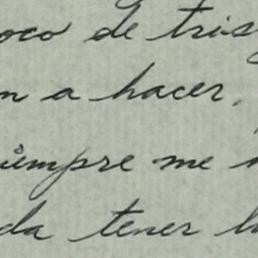 oco de tris
n a hacer.
siempre me
da tener l